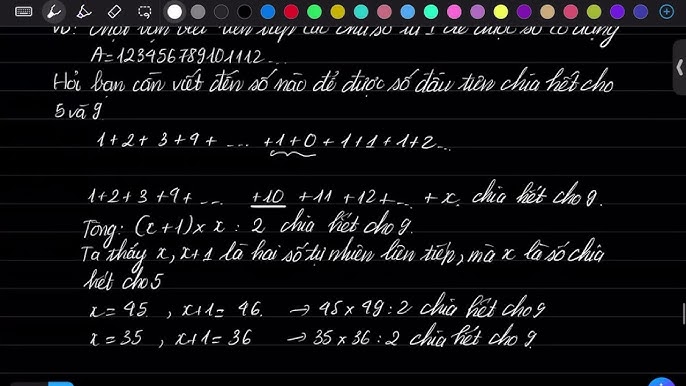 VD: Một bạn viết liên tiếp các chữ số từ 1 để được số có dạng
A=123456789101112...
Hỏi bạn cần viết đến số nào để được số đầu tiên chia hết cho
5 và 9.
1+2+ 3+9+ ... +1+0 + 1+1+1+2...
1+2+ 3 +9+ ... +10 +11 +12+... + x. chia hết cho 9.
Tổng: (x+1)× x : 2 chia hết cho 9.
Ta thấy x, x+1 là hai số tự nhiên liên tiếp, mà x là số chia
hết cho 5
x = 45 , x+1= 46. → 45 × 49 : 2 chia hết cho 9
x = 35 , x+1 = 36 → 35 × 36 : 2 chia hết cho 9.